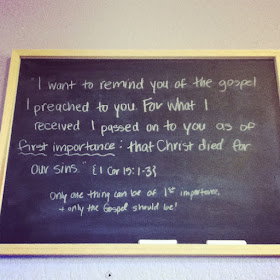 "I want to remind you of the gospel
I preached to you. For what I
received I passed on to you as of
first importance: that Christ died for
our sins." {1 Cor 15:1-3}
Only one thing can be of 1st importance,
+ only the Gospel should be!